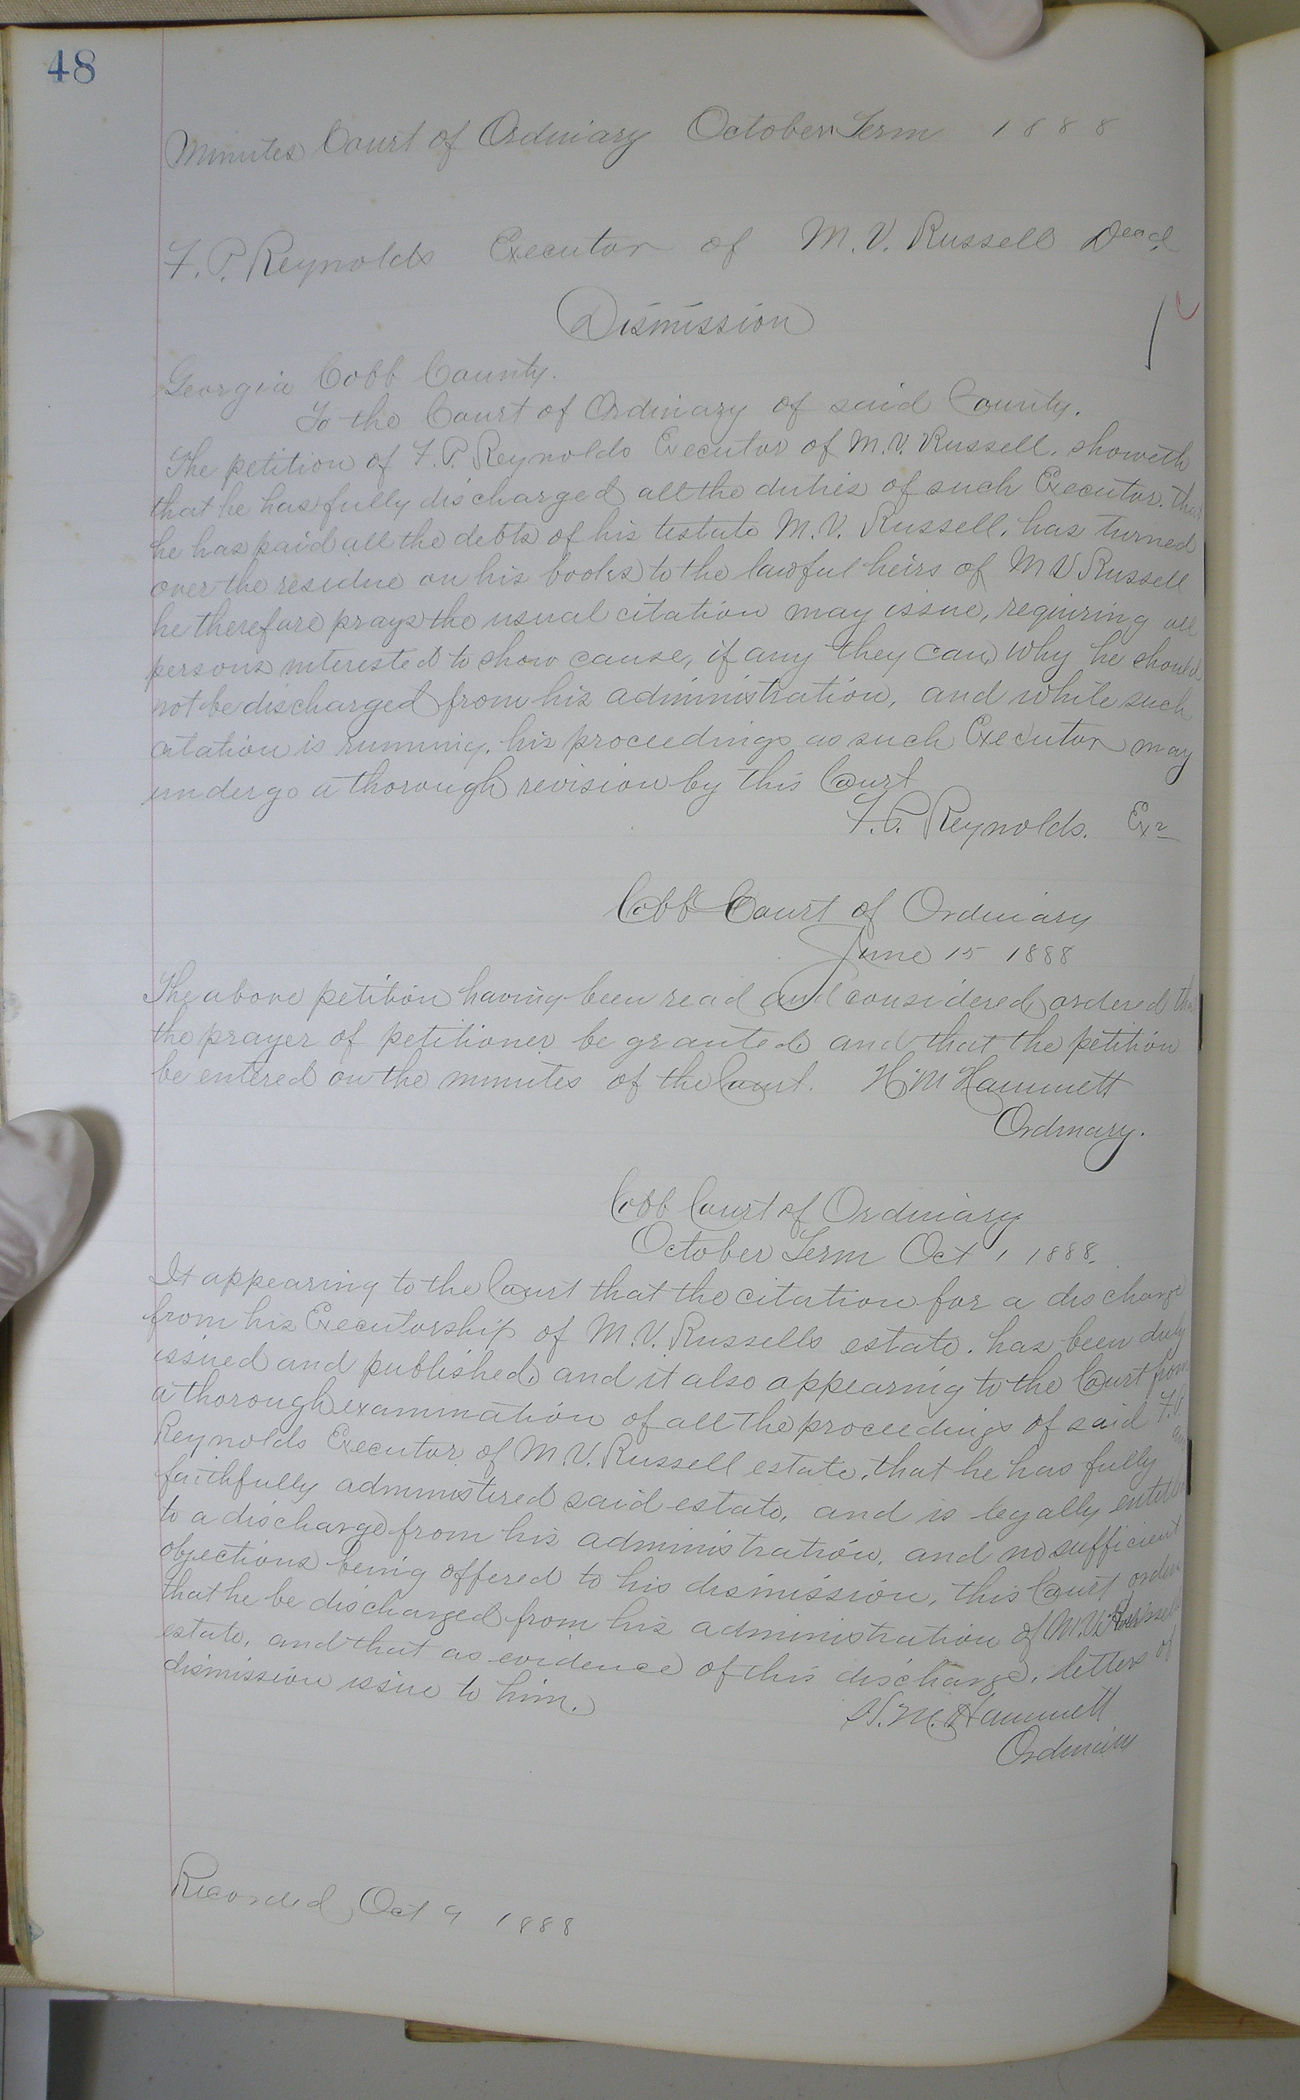 48
Minutes Court of Ordinary October Term 1888
F. P. Reynolds Executor of M. V. Russell Decd
Dismission
Georgia Cobb County.
To the Court of Ordinary of said County.
The petition of F. P. Reynolds Executor of M. V. Russell, showeth
that he has fully discharged all the duties of such Executor. that
he has paid all the debts of his testate M. V. Russell, has turned
over the residue on his books to the lawful heirs of M V Russell
he therefore prays the usual citation may issue, requiring all
persons interested to show cause, if any they can, why he should
not be discharged from his administration, and while such
citation is running, his proceedings as such Executor may
undergo a thorough revision by this Court
F. P. Reynolds. Exr
Cobb Court of Ordinary
June 15 1888
The above petition having been read and considered, ordered that
the prayer of petitioner be granted and that the petition
be entered on the minutes of the Court. H. M Hammett
Ordinary.
Cobb Court of Ordinary
October Term Oct 1 1888.
It appearing to the Court that the citation for a discharge
from his Executorship of M. V. Russells estate. has been duly
issued and published, and it also appearing to the Court from
a thorough examination of all the proceedings of said F. P.
Reynolds Executor of M. V. Russell estate, that he has fully and
faithfully administered said estate, and is legally entitled
to a discharge from his administration, and no sufficient
objections being offered to his dismission, this Court orders
that he be discharged from his administration of M. V. Russell
estate, and that as evidence of this discharge, letters of
dismission issue to him.
H. M. Hammett
Ordinary
Recorded Oct 9 1888